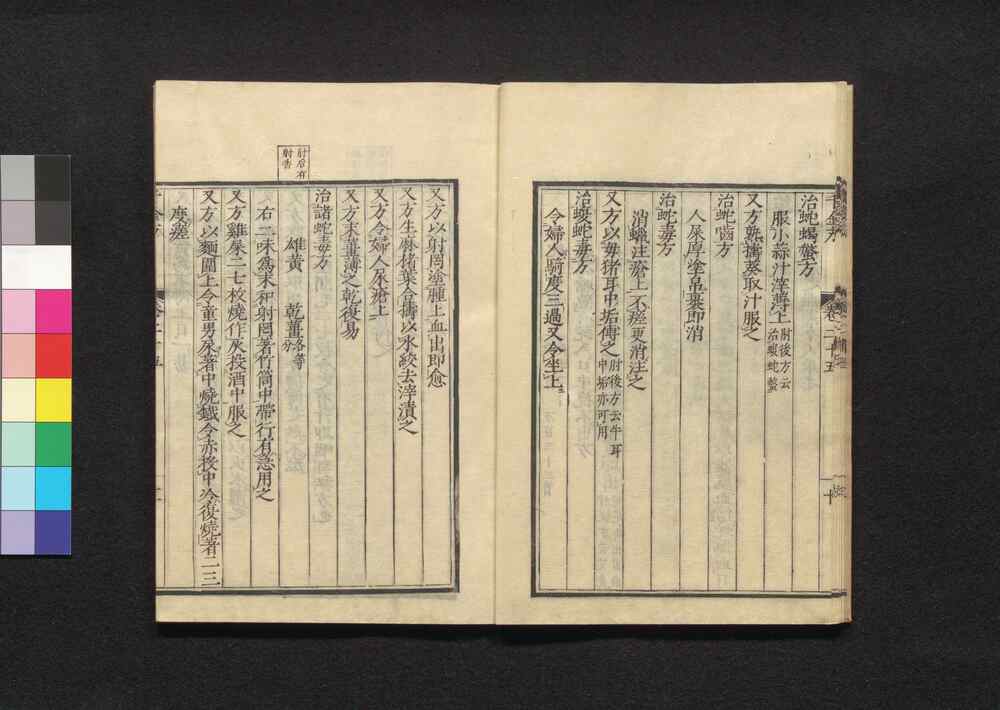 治蛇蝎螫方
服小蒜汁滓薄上肘後方云治蝮蛇螫
又方熟擣葵取汁服之
治蛇齧方
人屎厚塗帛裹即消
治蛇毒方
消蠟注瘡上不瘥更消注之
又方以母猪耳中垢傅之肘後方云牛耳中垢亦可用
治蝮蛇毒方
令婦人騎度三過又令坐上
又方以射罔塗腫上血出即愈
又方生麻楮葉合擣以水絞去滓漬之
又方令婦人尿瘡上
又方末薑薄之乾復易
治諸蛇毒方
肘后有射香
雄黃 乾薑各等分
右二味為末和射罔著竹筒中帶行有急用之
又方雞屎二七枚燒作灰投酒中服之
又方以麵圍上令童男尿著中燒鐵令赤投中冷復燒著二三
度差